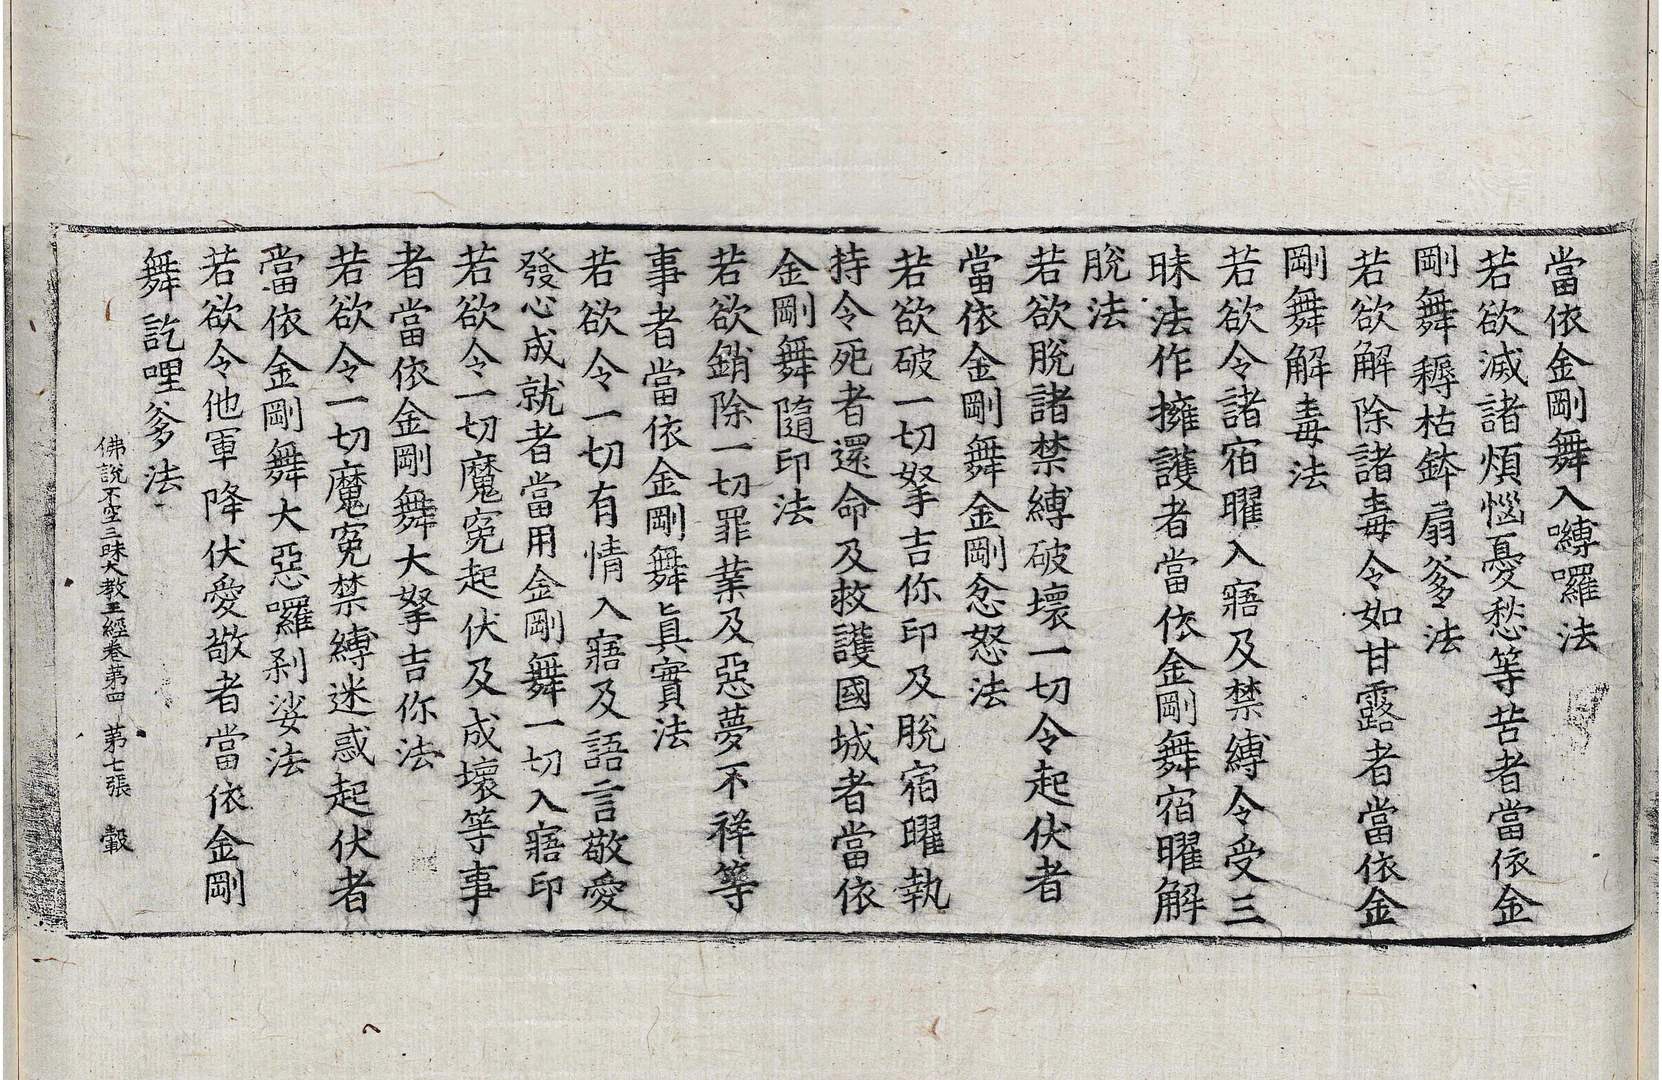 當依金剛舞入嚩囉法
若欲滅諸煩惱憂愁等苦者當依金
剛舞耨枯鉢扇爹法
若欲解除諸毒令如甘露者當依金
剛舞解毒法
若欲令諸宿曜入寤及禁縛令受三
昧法作擁護者當依金剛舞宿曜解
脫法
若欲脫諸禁縛破壞一切令起伏者
當依金剛舞金剛忿怒法
若欲破一切拏吉你印及脫宿曜執
持令死者還命及救護國城者當依
金剛舞隨印法
若欲銷除一切罪業及惡夢不祥等
事者當依金剛舞眞實法
若欲令一切有情入寤及語言敬愛
發心成就者當用金剛舞一切入寤印
若欲令一切魔寃起伏及成壞等事
者當依金剛舞大拏吉你法
若欲令一切魔寃禁縛迷惑起伏者
當依金剛舞大惡囉剎娑法
若欲令他軍降伏愛敬者當依金剛
舞訖哩爹法
佛說不空三昧大教王經卷第四 第七張 轂